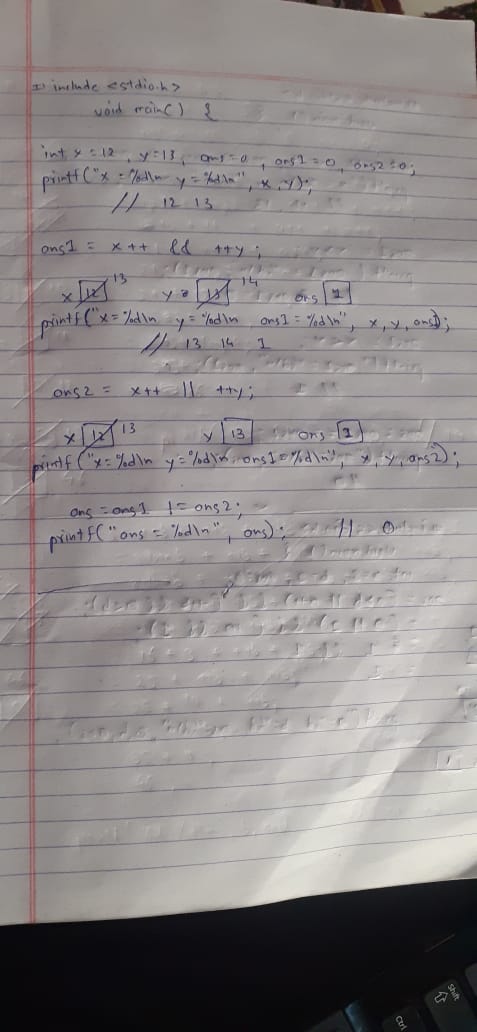 1) include <stdio.h>
void main() {
int x = 12, y = 13, ans = 0, ans1 = 0, ans2 = 0;
printf("x = %d\n y = %d\n", x, y);
// 12 13
ans1 = x++ && ++y;
x 12 13 y = 13 14 ans 1
printf("x = %d\n y = %d\n ans1 = %d\n", x, y, ans1);
// 13 14 1
ans2 = x++ || ++y;
x 12 13 y 13 ans 1
printf("x = %d\n y = %d\n ans1 = %d\n", x, y, ans2);
ans = ans1 != ans2;
printf("ans = %d\n", ans); // 0
Shift
Ctrl